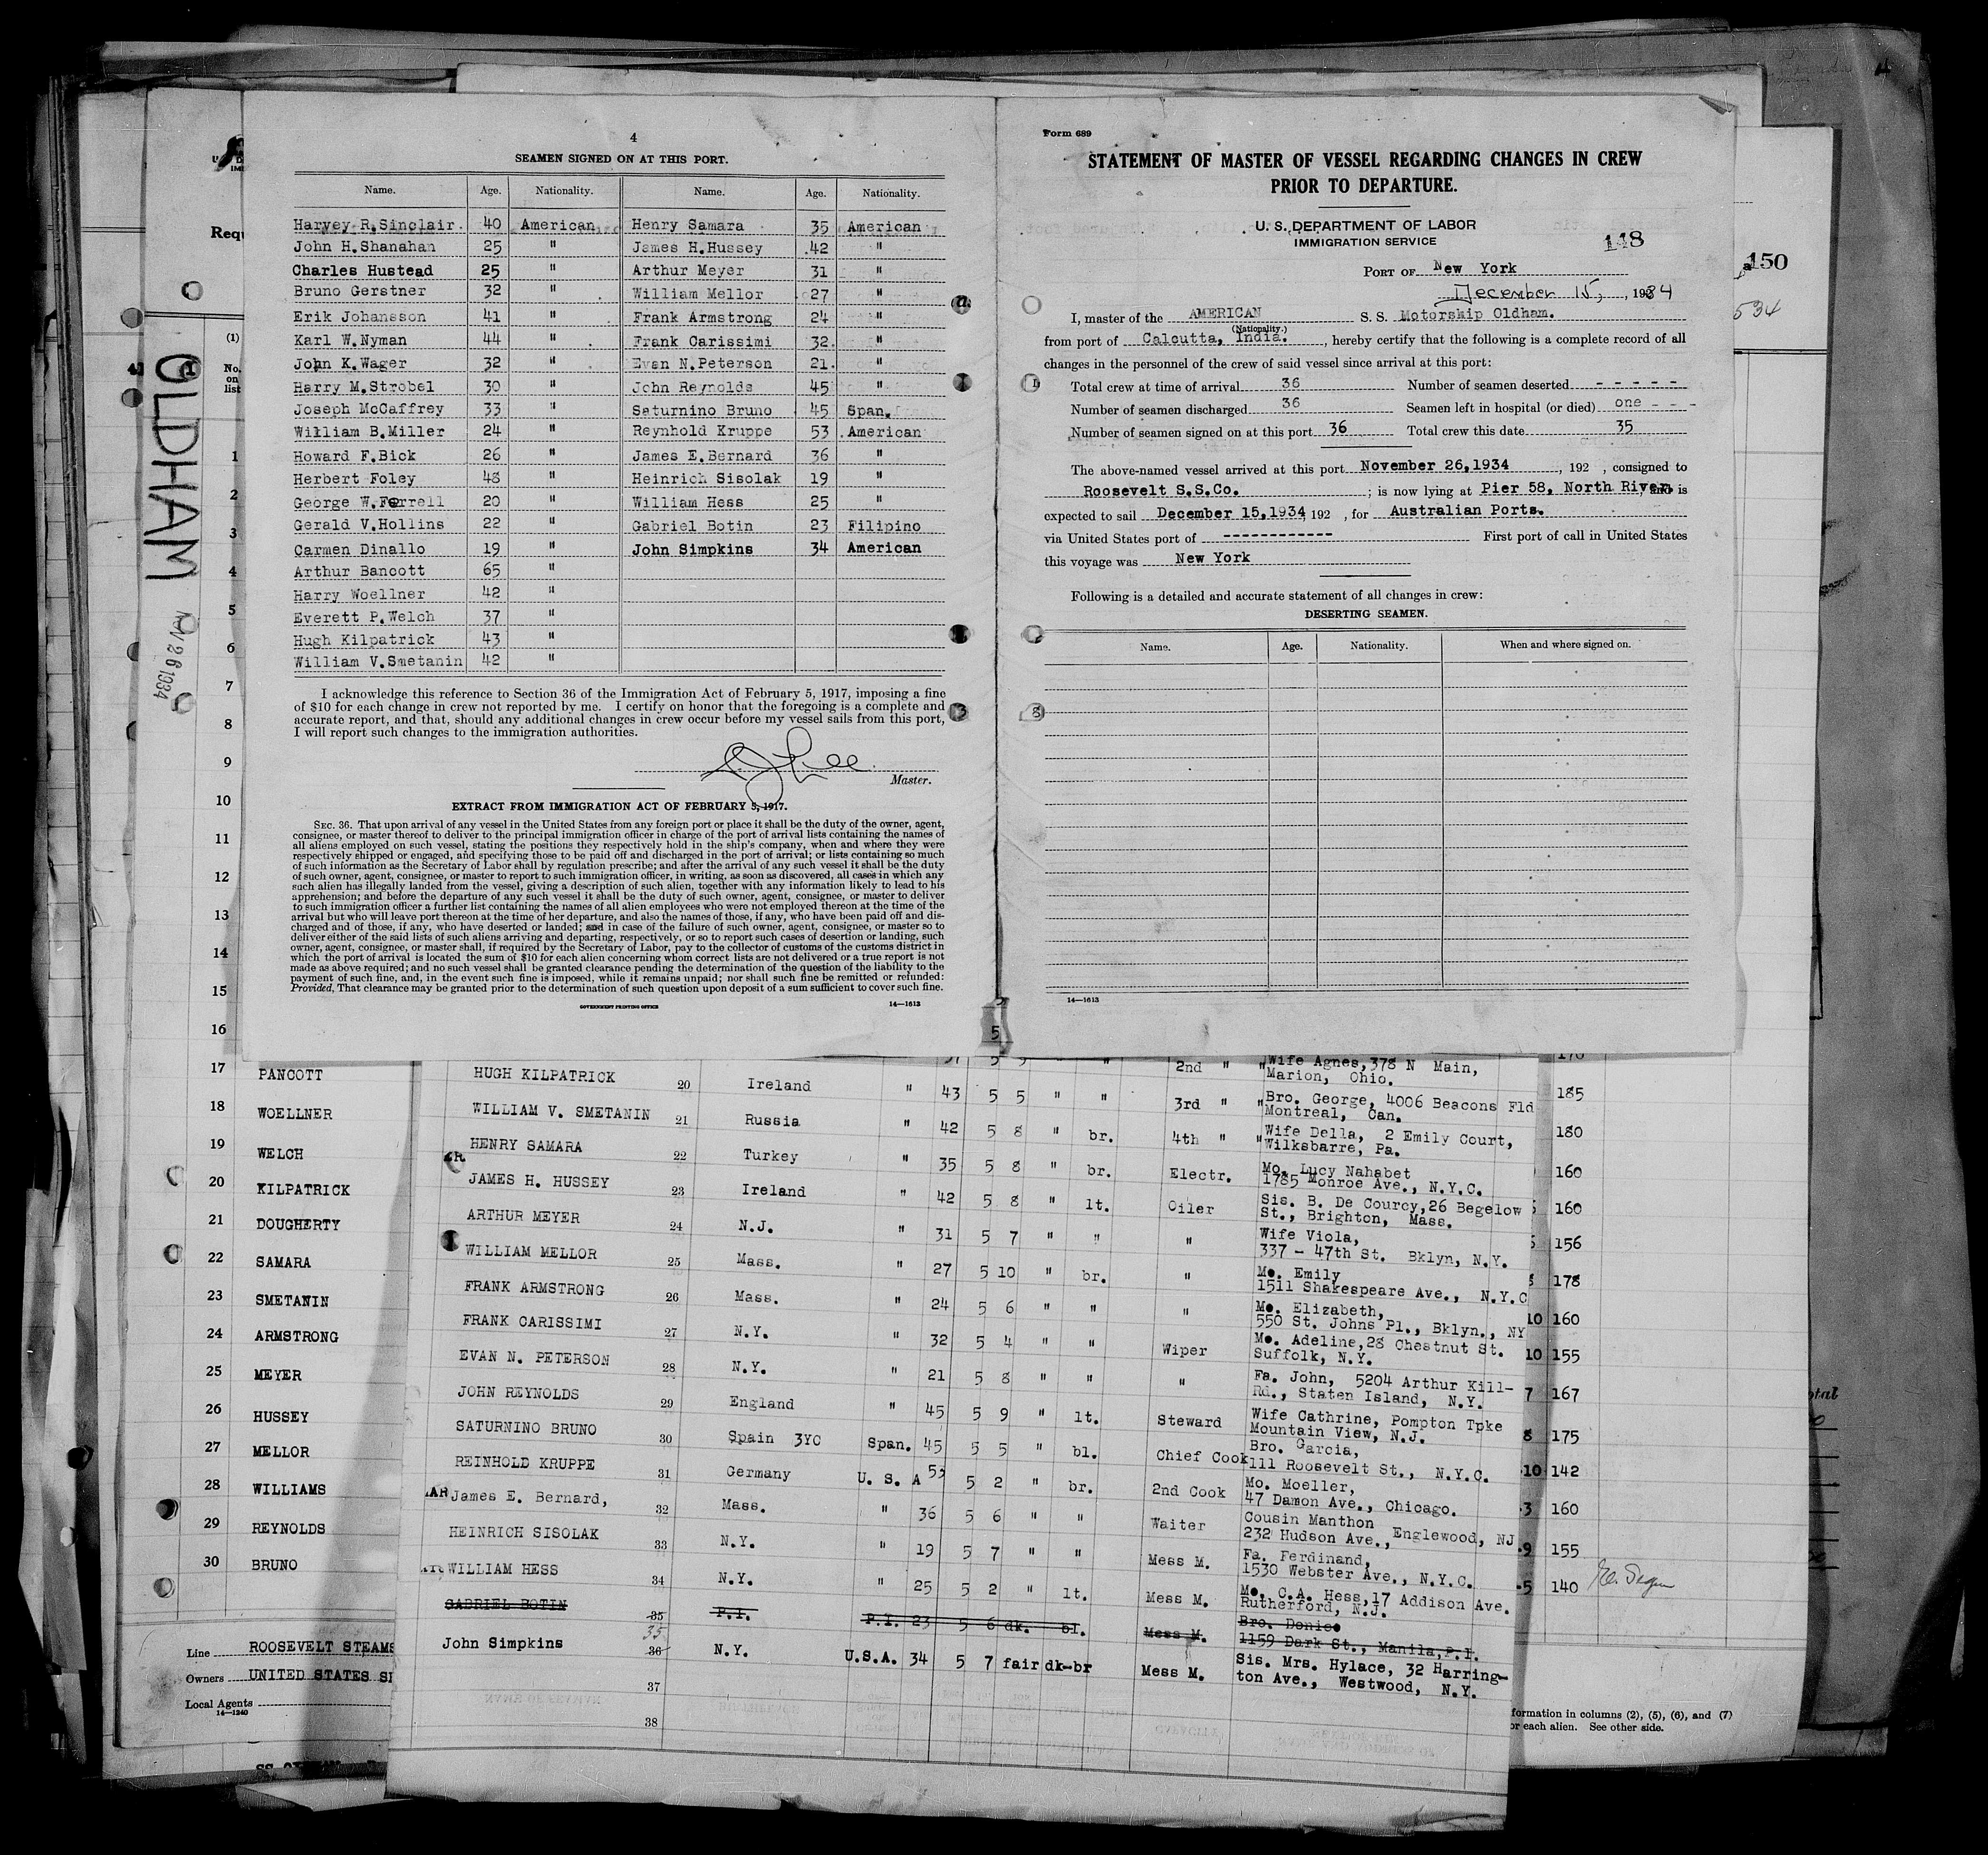 4
SEAMEN SIGNED ON AT THIS PORT.
Name. Age. Nationality. Name. Age. Nationality.
Harvey R. Sinclair. 40 American Henry Samara 35 American
John H. Shanahan 25 " James H. Hussey 42 "
Charles Hustead 25 " Arthur Meyer 31 "
Bruno Gerstner 32 " William Mellor 27 "
Erik Johansson 41 " Frank Armstrong 24 "
Karl W. Nyman 44 " Frank Carissimi 32. "
John K. Wager 32 " Evan N. Peterson 21. "
Harry M. Strobel 30 " John Reynolds 45 "
Joseph McCaffrey 33 " Saturnino Bruno 45 Span.
William B. Miller 24 " Reynhold Kruppe 53 American
Howard F. Bick 26 " James E. Bernard 36 "
Herbert Foley 48 " Heinrich Sisolak 19 "
George W. Ferrell 20 " William Hess 25 "
Gerald V. Hollins 22 " Gabriel Botin 23 Filipino
Carmen Dinallo 19 " John Simpkins 34 American
Arthur Bancott 65 "
Harry Woellner 42 "
Everett P. Welch 37 "
Hugh Kilpatrick 43 "
William V. Smetanin 42 "
I acknowledge this reference to Section 36 of the Immigration Act of February 5, 1917, imposing a fine
of $10 for each change in crew not reported by me. I certify on honor that the foregoing is a complete and
accurate report, and that, should any additional changes in crew occur before my vessel sails from this port,
I will report such changes to the immigration authorities.
Master.
EXTRACT FROM IMMIGRATION ACT OF FEBRUARY 5, 1917.
SEC. 36. That upon arrival of any vessel in the United States from any foreign port or place it shall be the duty of the owner, agent,
consignee, or master thereof to deliver to the principal immigration officer in charge of the port of arrival lists containing the names of
all aliens employed on such vessel, stating the positions they respectively hold in the ship's company, when and where they were
respectively shipped or engaged, and specifying those to be paid off and discharged in the port of arrival; or lists containing so much
of such information as the Secretary of Labor shall by regulation prescribe; and after the arrival of any such vessel it shall be the duty
of such owner, agent, consignee, or master to report to such immigration officer, in writing, as soon as discovered, all cases in which any
such alien has illegally landed from the vessel, giving a description of such alien, together with any information likely to lead to his
apprehension; and before the departure of any such vessel it shall be the duty of such owner, agent, consignee, or master to deliver
to such immigration officer a further list containing the names of all alien employees who were not employed thereon at the time of the
arrival but who will leave port thereon at the time of her departure, and also the names of those, if any, who have been paid off and dis-
charged and of those, if any, who have deserted or landed; and in case of the failure of such owner, agent, consignee, or master so to
deliver either of the said lists of such aliens arriving and departing, respectively, or so to report such cases of desertion or landing, such
owner, agent, consignee, or master shall, if required by the Secretary of Labor, pay to the collector of customs of the customs district in
which the port of arrival is located the sum of $10 for each alien concerning whom correct lists are not delivered or a true report is not
made as above required; and no such vessel shall be granted clearance pending the determination of the question of the liability to the
payment of such fine, and, in the event such fine is imposed, while it remains unpaid; nor shall such fine be remitted or refunded:
Provided, That clearance may be granted prior to the determination of such question upon deposit of a sum sufficient to cover such fine.
GOVERNMENT PRINTING OFFICE 14—1613
Form 689
STATEMENT OF MASTER OF VESSEL REGARDING CHANGES IN CREW
PRIOR TO DEPARTURE.
U. S. DEPARTMENT OF LABOR
IMMIGRATION SERVICE
148
PORT OF New York
December 15, , 1934
I, master of the AMERICAN S. S. Motorship Oldham.
(Nationality.)
from port of Calcutta, India. , hereby certify that the following is a complete record of all
changes in the personnel of the crew of said vessel since arrival at this port:
Total crew at time of arrival 36 Number of seamen deserted - - - - -
Number of seamen discharged 36 Seamen left in hospital (or died) one - - -
Number of seamen signed on at this port 36 Total crew this date 35
The above-named vessel arrived at this port November 26,1934 , 192 , consigned to
Roosevelt S.S.Co. ; is now lying at Pier 58, North River, and is
expected to sail December 15,1934 192 , for Australian Ports.
via United States port of ------------ First port of call in United States
this voyage was New York
Following is a detailed and accurate statement of all changes in crew:
DESERTING SEAMEN.
Name. Age. Nationality. When and where signed on.
14—1613
5
150
534
Requ
(1)
No.
on
list
OLDHAM
NOV 26 1934
1
2
3
4
5
6
7
8
9
10
11
12
13
14
15
16
17 PANCOTT
18 WOELLNER
19 WELCH
20 KILPATRICK
21 DOUGHERTY
22 SAMARA
23 SMETANIN
24 ARMSTRONG
25 MEYER
26 HUSSEY
27 MELLOR
28 WILLIAMS
29 REYNOLDS
30 BRUNO
Line ROOSEVELT STEAMS
Owners UNITED STATES S
Local Agents
14—1240
2nd " " Wife Agnes, 378 N Main,
Marion, Ohio.
HUGH KILPATRICK 20 Ireland " 43 5 5 " " 3rd " " Bro. George, 4006 Beacons Fld
Montreal, Can.
WILLIAM V. SMETANIN 21 Russia " 42 5 8 " br. 4th " " Wife Della, 2 Emily Court,
Wilksbarre, Pa.
HENRY SAMARA 22 Turkey " 35 5 8 " br. Electr. Mo. Lucy Nahabet
1785 Monroe Ave., N.Y.C.
JAMES H. HUSSEY 23 Ireland " 42 5 8 " lt. Oiler Sis. B. De Courcy, 26 Begelow
St., Brighton, Mass.
ARTHUR MEYER 24 N.J. " 31 5 7 " " " Wife Viola,
337 - 47th St. Bklyn, N.Y.
WILLIAM MELLOR 25 Mass. " 27 5 10 " br. " Mo. Emily
1511 Shakespeare Ave., N.Y.C
FRANK ARMSTRONG 26 Mass. " 24 5 6 " " " Mo. Elizabeth,
550 St. Johns Pl., Bklyn., NY
FRANK CARISSIMI 27 N.Y. " 32 5 4 " " Wiper Mo. Adeline, 28 Chestnut St.
Suffolk, N.Y.
EVAN N. PETERSON 28 N.Y. " 21 5 8 " " " Fa. John, 5204 Arthur Kill-
Rd., Staten Island, N.Y.
JOHN REYNOLDS 29 England " 45 5 9 " lt. Steward Wife Cathrine, Pompton Tpke
Mountain View, N.J.
SATURNINO BRUNO 30 Spain 3YC Span. 45 5 5 " bl. Chief Cook Bro. Garcia,
111 Roosevelt St., N.Y.C.
REINHOLD KRUPPE 31 Germany U. S. A 53 5 2 " br. 2nd Cook Mo. Moeller,
47 Damon Ave., Chicago.
James E. Bernard, 32 Mass. " 36 5 6 " " Waiter Cousin Manthon
232 Hudson Ave., Englewood, NJ
HEINRICH SISOLAK 33 N.Y. " 19 5 7 " " Mess M. Fa. Ferdinand,
1530 Webster Ave., N.Y.C.
WILLIAM HESS 34 N.Y. " 25 5 2 " lt. Mess M. Mo. C.A. Hess, 17 Addison Ave.
Rutherford, N.J.
GABRIEL BOTIN 35 P.I. P.I. 23 5 6 dk. bl. Mess M. Bro. Donic
1159 Dark St., Manila, P.I.
John Simpkins 35 36 N.Y. U.S.A. 34 5 7 fair dk-br Mess M. Sis. Mrs. Hylace, 32 Harring-
ton Ave., Westwood, N.Y.
37
38
170
185
180
160
160
156
178
10 160
10 155
7 167
8 175
10 142
3 160
9 155
5 140
otal
formation in columns (2), (5), (6), and (7)
or each alien. See other side.